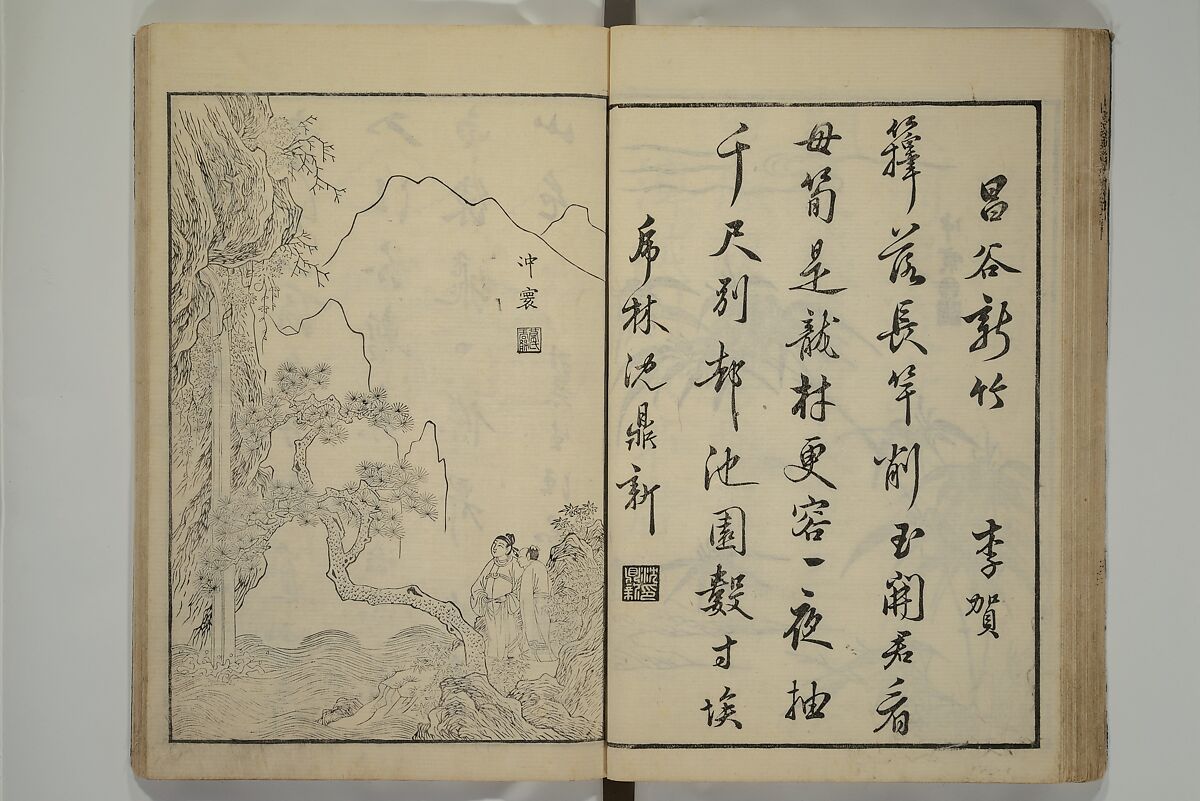 昌谷新竹 李賀
籜落長竿削玉開君看
母筍是龍材更容一夜抽
千尺別却池園數寸埃
虎林沈鼎新
沈印鼎新
沖寰